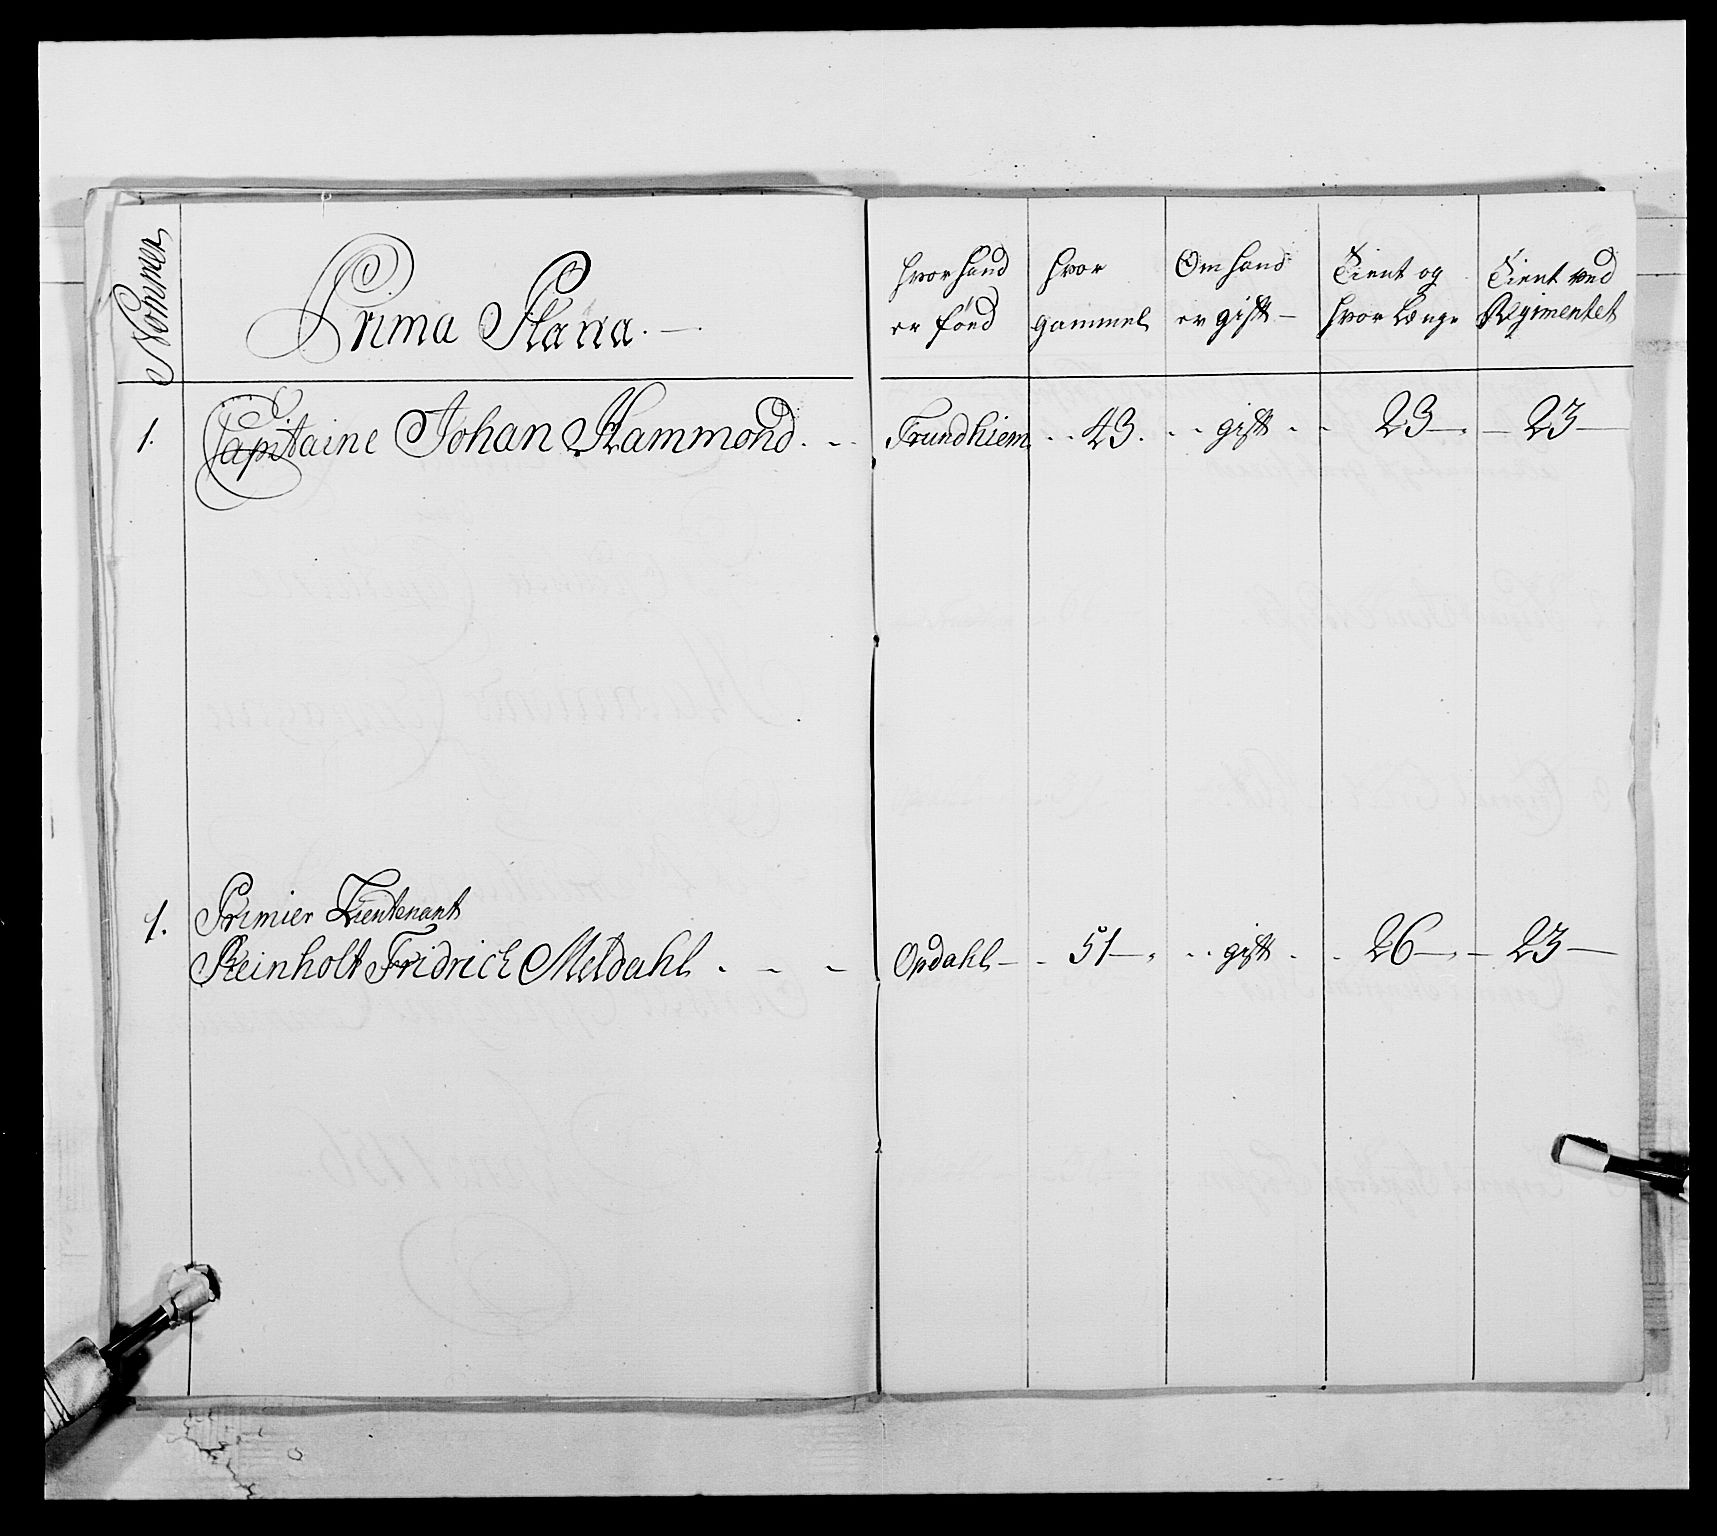 Nommer
Prima Plana. —
hvor hand
er föed
hvor
gammel
Om hand
er gift —
Tient og
hvor Længe
Tient ved
Regimentet
1. Capitaine Johan Hammond. - - Trundhiem - - 43. - - gift - - 23 — . — 23 —
1. Primier Lieutenant
Reinholt Fridrich Meldahl . - - Opdahl — - 51 — . - - gift . - 26 — . — 23 —